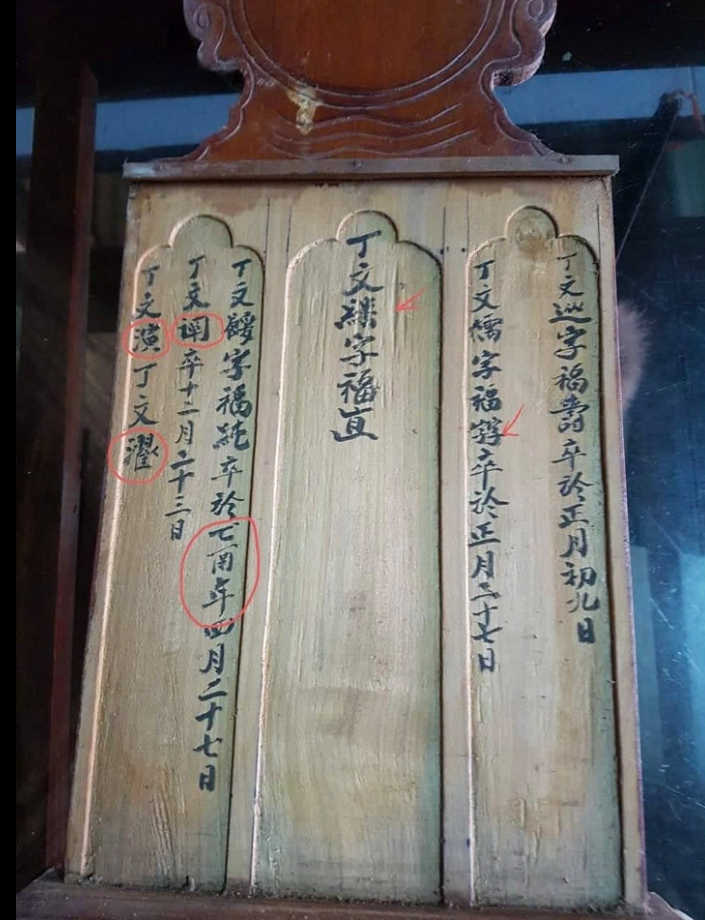 丁文巡字福壽卒於正月初九日
丁文儒字福 卒於正月二十七日
丁文 字福直
丁文餒字福純卒於 酉年四月二十七日
丁文 卒十二月二十三日
丁文演丁文濯